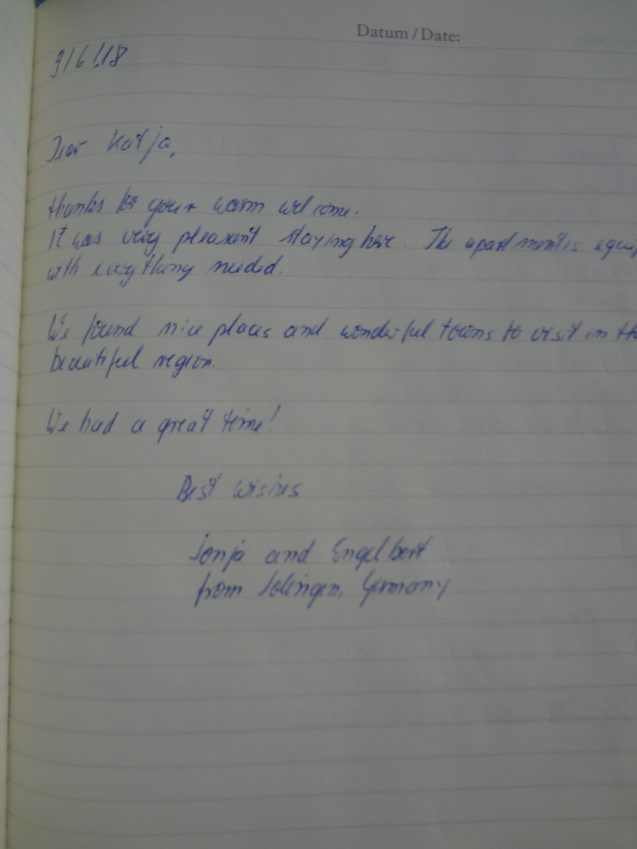 Datum / Date:
9/6/18
Dear Katja,
thanks for your warm welcome.
It was very pleasant staying here. The apartment is equip
with everything needed.
We found nice places and wonderful towns to visit in th
beautiful region.
We had a great time!
Best wishes
Sonja and Engelbert
from Solingen, Germany